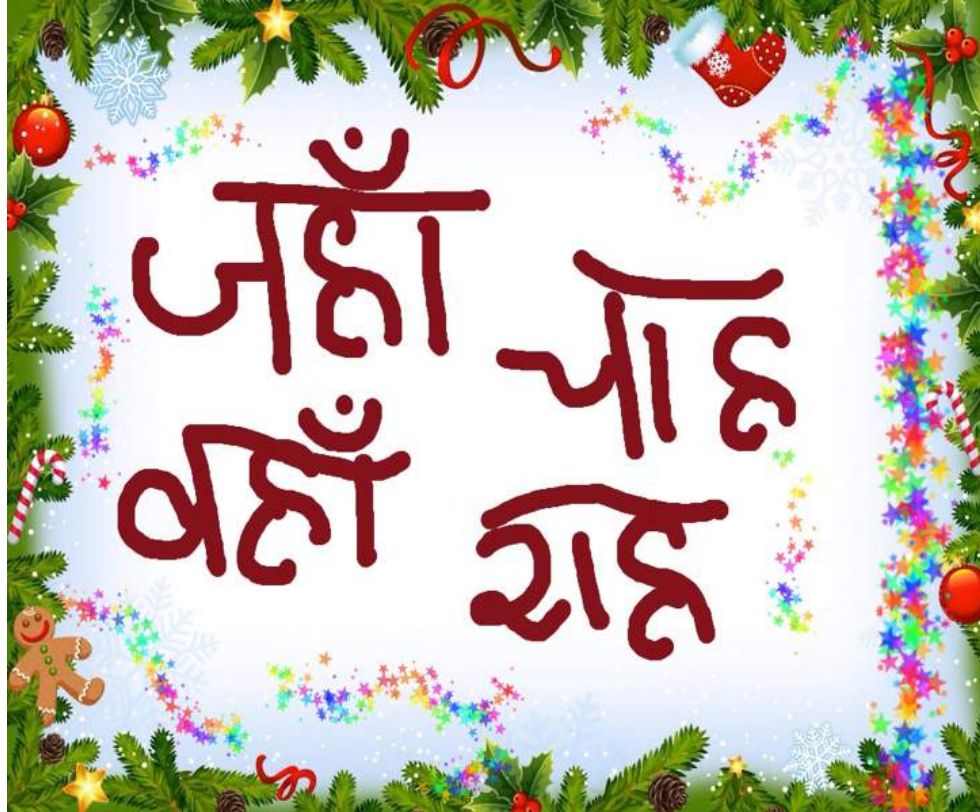 जहाँ चाह
वहाँ राह